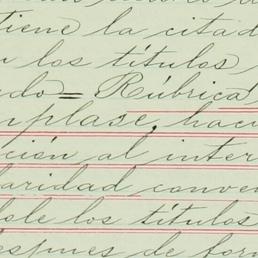 tiene la citad
los títulos
do = Rúbrica
nplase, hacie
ción al inter
aridad conve
dole los títulos
espues de for